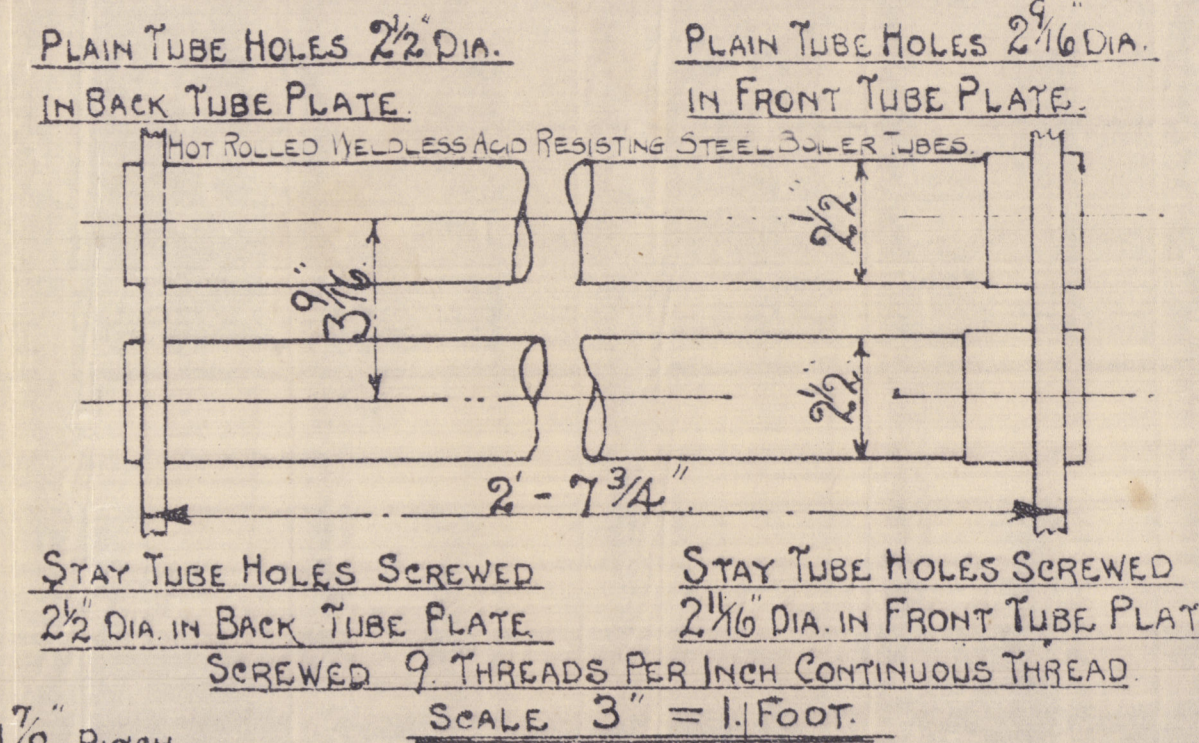 PLAIN TUBE HOLES 2½" DIA.
IN BACK TUBE PLATE.
PLAIN TUBE HOLES 2 9/16" DIA.
IN FRONT TUBE PLATE.
HOT ROLLED WELDLESS ACID RESISTING STEEL BOILER TUBES.
2½"
3 9/16"
2½"
2' - 7 3/4"
STAY TUBE HOLES SCREWED
2½" DIA. IN BACK TUBE PLATE
STAY TUBE HOLES SCREWED
2 11/16" DIA. IN FRONT TUBE PLAT
SCREWED 9. THREADS PER INCH CONTINUOUS THREAD.
SCALE 3" = 1. FOOT.